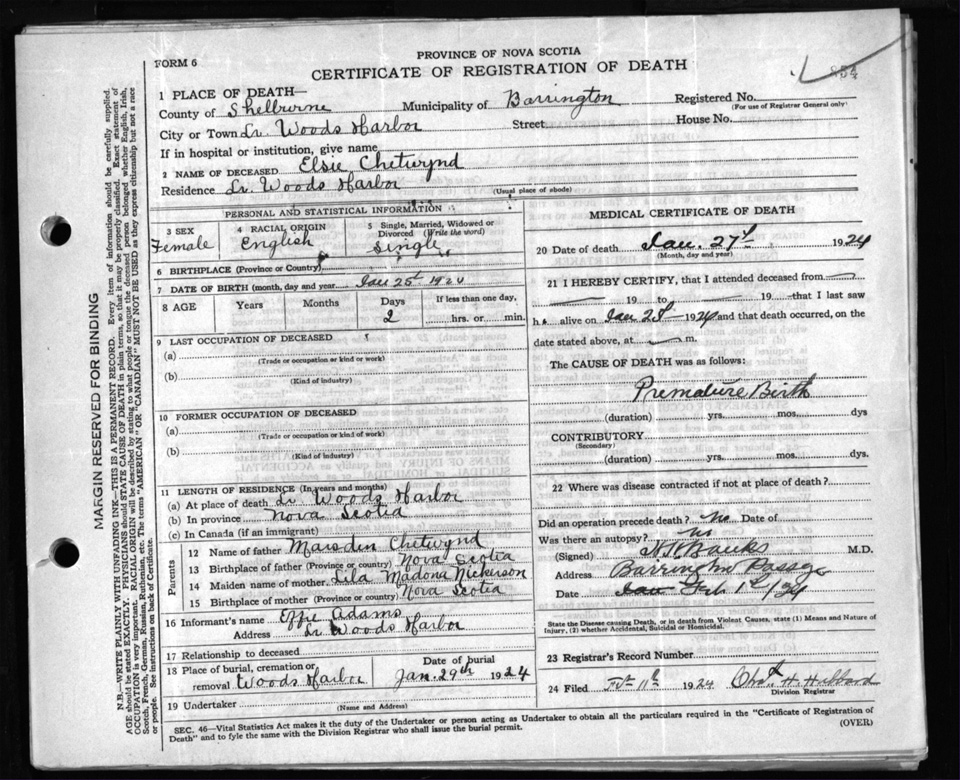 PROVINCE OF NOVA SCOTIA
FORM 6
CERTIFICATE OF REGISTRATION OF DEATH
854
1 PLACE OF DEATH—
County of Shelburne Municipality of Barrington Registered No.
(For use of Registrar General only)
City or Town Lr. Woods Harbor Street House No.
If in hospital or institution, give name
2 NAME OF DECEASED Elsie Chetwynd
Residence Lr. Woods Harbor (Usual place of abode)
PERSONAL AND STATISTICAL INFORMATION
3 SEX
Female
4 RACIAL ORIGIN
English
5 Single, Married, Widowed or Divorced (Write the word)
Single
6 BIRTHPLACE (Province or Country)
7 DATE OF BIRTH (month, day and year) Jan 25th 192
8 AGE Years Months Days If less than one day,
2 hrs. or min.
9 LAST OCCUPATION OF DECEASED
(a)
(Trade or occupation or kind or work)
(b)
(Kind of industry)
10 FORMER OCCUPATION OF DECEASED
(a)
(Trade or occupation or kind of work)
(b)
(Kind of industry)
11 LENGTH OF RESIDENCE (In years and months)
(a) At place of death Lr Woods Harbor
(b) In province Nova Scotia
(c) In Canada (if an immigrant)
Parents
12 Name of father Marsden Chetwynd
13 Birthplace of father (Province or country) Nova Scotia
14 Maiden name of mother Lila Madona Nickerson
15 Birthplace of mother (Province or country) Nova Scotia
16 Informant's name Effie Adams
Address Lr Woods Harbor
17 Relationship to deceased
18 Place of burial, cremation or removal Woods Harbor
Date of burial
Jan. 29th 1924
19 Undertaker
(Name and Address)
MEDICAL CERTIFICATE OF DEATH
20 Date of death Jan. 27th 1924
(Month, day and year)
21 I HEREBY CERTIFY, that I attended deceased from
19 to 19 that I last saw
h alive on Jan 192 and that death occurred, on the
date stated above, at m.
The CAUSE OF DEATH was as follows:
Premature Birth
(duration) yrs. mos. dys
CONTRIBUTORY
(Secondary)
(duration) yrs. mos. dys.
22 Where was disease contracted if not at place of death?
Did an operation precede death? No Date of
Was there an autopsy? No
(Signed) Banks M.D.
Address Barrington Passage
Date Feb 1st/24
State the Disease causing Death, or in death from Violent Causes, state (1) Means and Nature of Injury, (2) whether Accidental, Suicidal or Homicidal.
23 Registrar's Record Number
24 Filed Feb 11th 1924 Chas. H. Hubbard
Division Registrar
SEC. 46—Vital Statistics Act makes it the duty of the Undertaker or person acting as Undertaker to obtain all the particulars required in the "Certificate of Registration of
Death" and to fyle the same with the Division Registrar who shall issue the burial permit. (OVER)
MARGIN RESERVED FOR BINDING
N.B.—WRITE PLAINLY WITH UNFADING INK—THIS IS A PERMANENT RECORD. Every item of information should be carefully supplied.
AGE should be stated EXACTLY. PHYSICIANS should STATE CAUSE OF DEATH in plain terms, so that it may be properly classified. Exact statement of
OCCUPATION is very important. RACIAL ORIGIN will be described by stating to what people or tongue the deceased person belonged whether English, Irish,
Scotch, French, German, Russian, Ruthenian, etc. The terms "AMERICAN" OR "CANADIAN" MUST NOT BE USED as they express citizenship but not a race
or people. See instructions on back of Certificate.